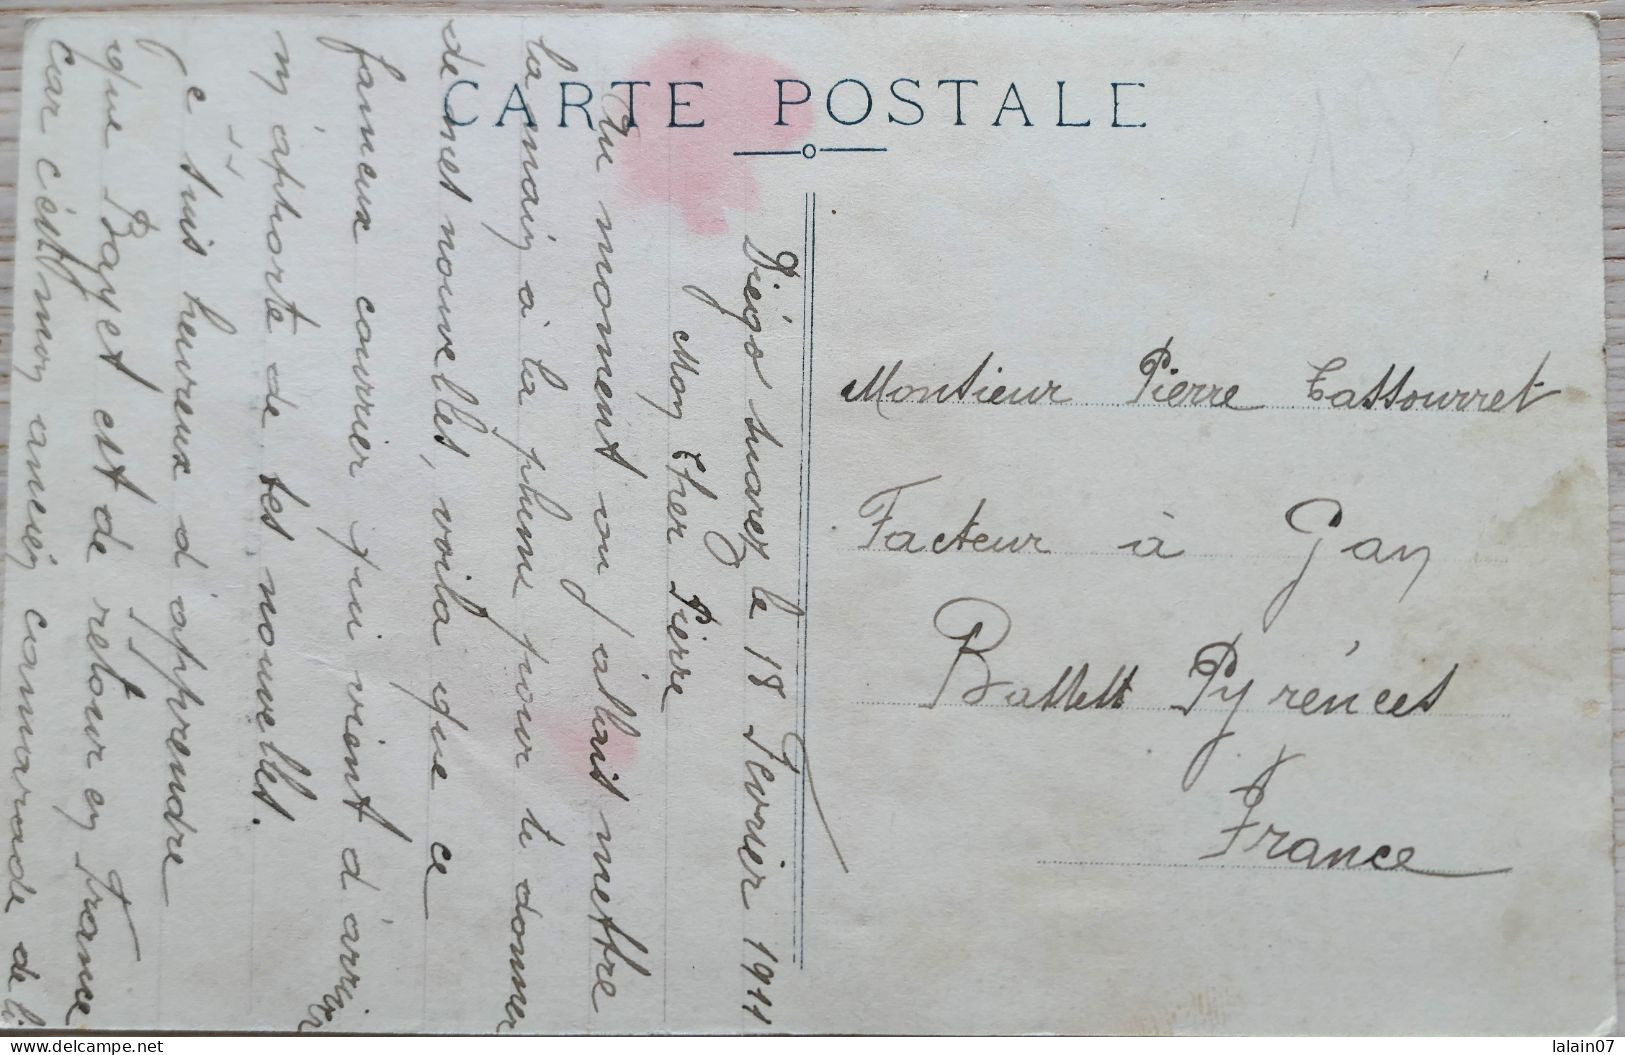 CARTE POSTALE
Diégo Suarez le 18 Fevrier 1911
Mon Cher Pierre
Au moment ou j'allais mettre
la main à la plume pour te donner
de mes nouvelles, voila que ce
fameux courrier qui vient d'arriver
m'aporte de tes nouvelles.
Je suis heureux d'apprendre
que Bayet est de retour en France
car c'est mon ancien camarade de li
Monsieur Pierre Cassourret
Facteur à Gan
Basses Pyrénées
France
lalain07